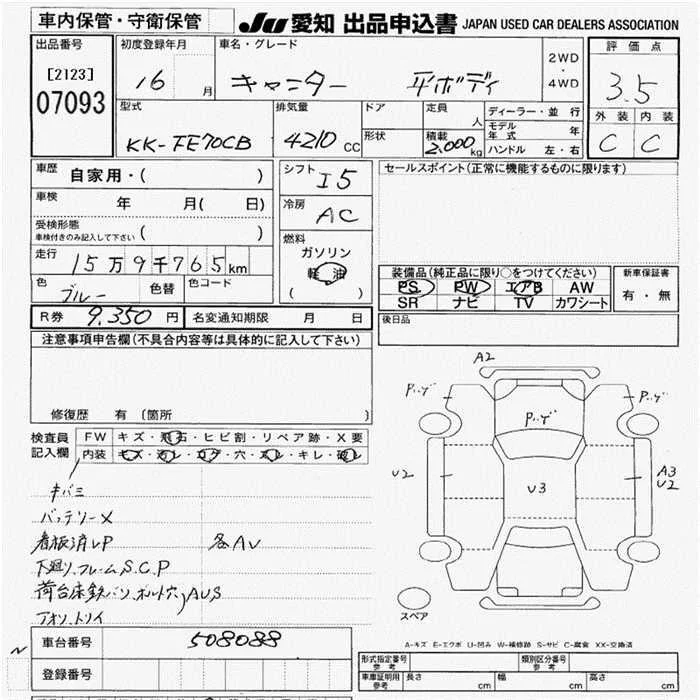 車内保管・守衛保管
JU 愛知 出品申込書 JAPAN USED CAR DEALERS ASSOCIATION
出品番号 [2123] 07093
初度登録年月 16 月
車名・グレード キャンター 平ボディ
2WD・4WD
評価点 3.5
外装 C 内装 C
型式 KK-FE70CB
排気量 4210 CC
ドア 形状
定員 人
積載 2,000 kg
ディーラー・並行
モデル年式 年
ハンドル 左・右
車歴 自家用・( )
車検 年 月( 日)
受検形態 車検付きのみ記入して下さい ( )
走行 15万9千765km
色 ブルー 色替 色コード
シフト I5
冷房 AC
燃料 ガソリン 軽油 ( )
セールスポイント(正常に機能するものに限ります)
装備品(純正品に限り○をつけてください)
PS PW エアB AW
SR ナビ TV カワシート
新車保証書 有・無
R券 9,350 円 名変通知期限 月 日
後日品
注意事項申告欄(不具合内容等は具体的に記入して下さい)
修復歴 有 〔箇所 〕
検査員記入欄
FW キズ・飛石・ヒビ割・リペア跡・X要
内装 キズ・汚レ・コゲ・穴・スレ・キレ・破レ
キバミ
バッテリーX
看板済レP 各AU
下廻り、フレームS.C.P
荷台床鉄バン、ボルト穴、AUS
アオリ、トリイ
A2
パーゲ パーゲ
パーゲ
U2 U3 A3 U2
スペア
A-キズ E-エクボ U-凹み W-補修跡 S-サビ C-腐食 XX-交換済
車台番号 508088
登録番号
型式指定番号 参考
類別区分番号 参考
車庫証明用 参考 長さ cm 幅 cm 高さ cm